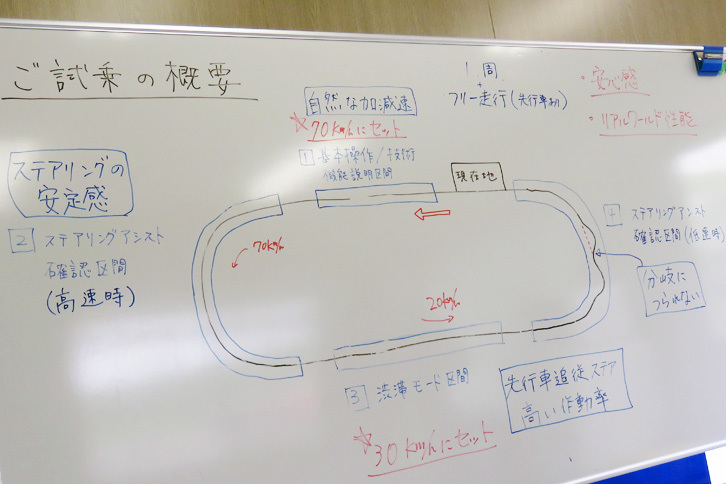 ご試乗の概要
1周
+
フリー走行(先行車有)
・安心感
・リアルワールド性能
自然な加減速
☆70km/hにセット
1 基本操作/技術
機能説明区間
現在地
ステアリングの
安定感
2 ステアリングアシスト
確認区間
(高速時)
70km/h
20km/h
4 ステアリングアシスト
確認区間(低速時)
分岐に
つられない
3 渋滞モード区間
☆30km/hにセット
先行車追従ステア
高い作動率